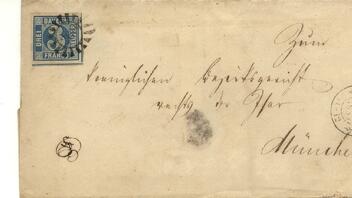 BAYERN
DREI
FRANCO
3
Zum
Königlichen Bezirksgericht
rechts der Isar
München